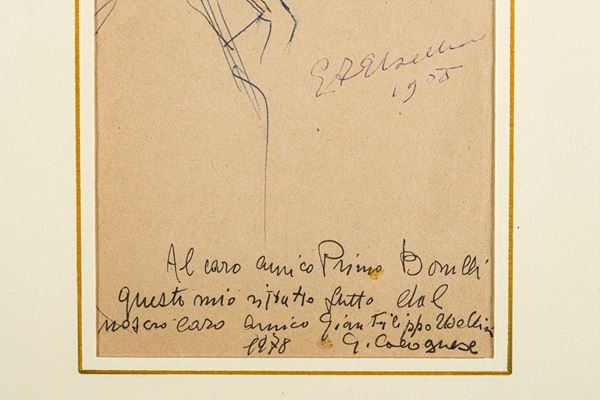 G F Usellini
1955
Al caro amico Primo Borelli
questo mio ritratto fatto dal
nostro caro amico Gian Filippo Usellini
1978 G. Colognese